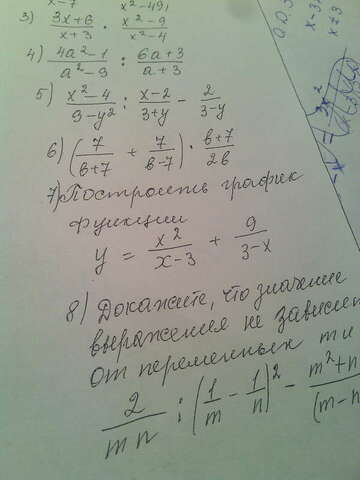 x-7   x²-49
3) (3x+6)/(x+3) · (x²-9)/(x²-4)
4) (4a²-1)/(a²-9) : (6a+3)/(a+3)
5) (x²-4)/(9-y²) : (x-2)/(3+y) - 2/(3-y)
6) (7/(в+7) + 7/(в-7)) · (в+7)/2в
7) Построить график
функции
y = x²/(x-3) + 9/(3-x)
8) Докажите, что значение
выражения не зависит
от переменных m и
2/(mn) : (1/m - 1/n)² - (m²+n)/(m-n